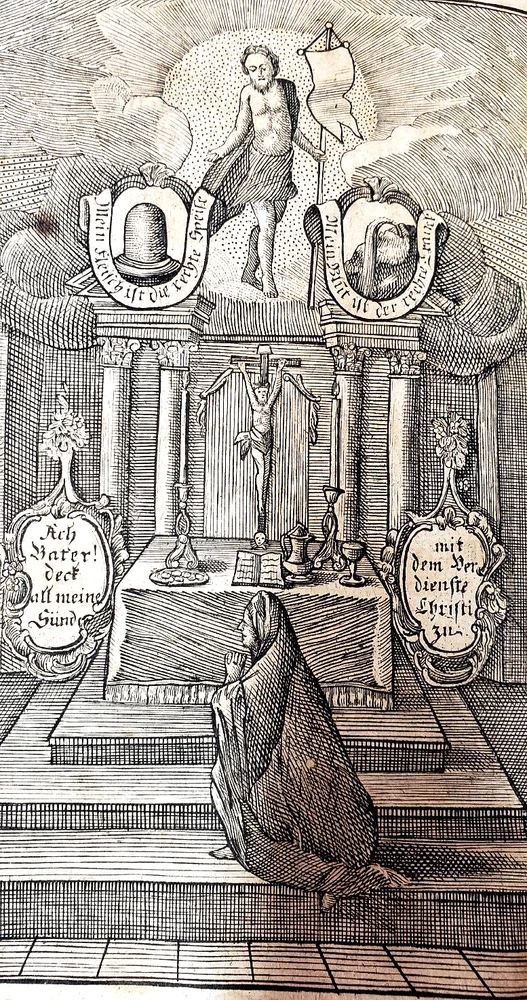 Mein Fleisch ist die rechte Speise
Mein Blut ist der rechte Tranck
Ach
Vater!
deck
all meine
Sünd
mit
dem Ver
dienste
Christi
zu